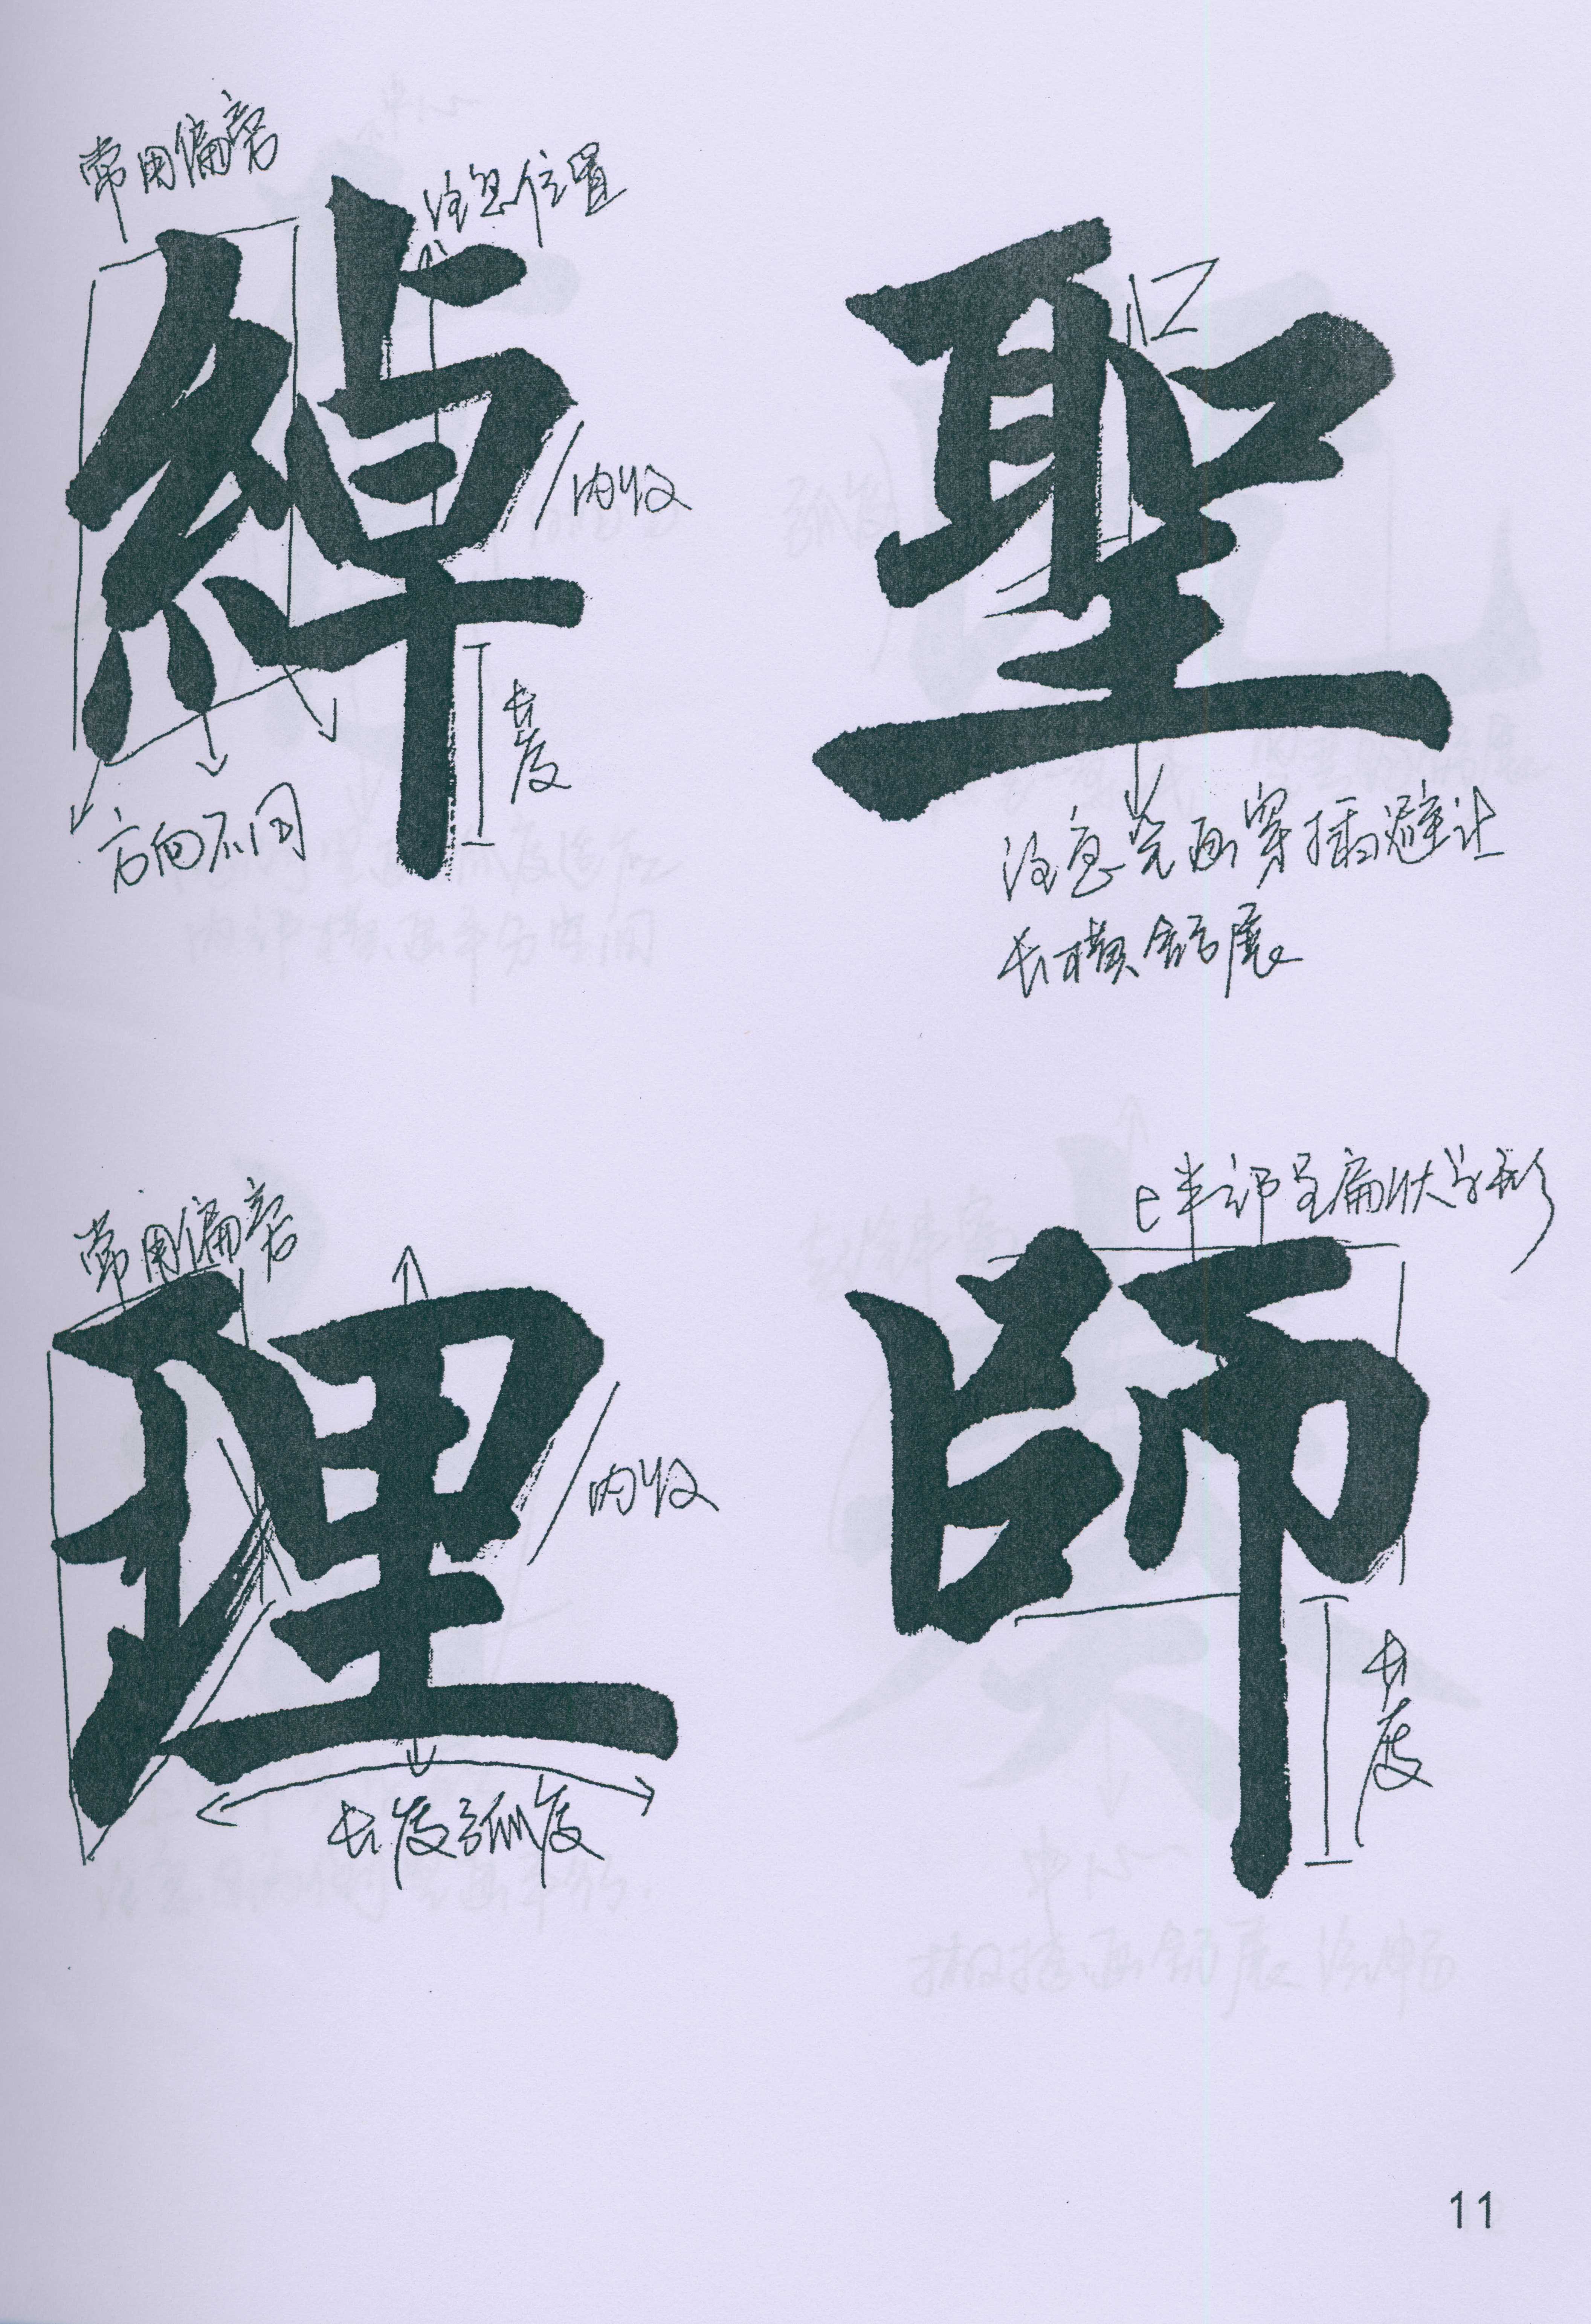 常用偏旁
注意位置
綽
内收
长度
方向不同
聖
注意笔画穿插避让
长横舒展
常用偏旁
理
内收
长度弧度
上半部呈扁状字形
師
长度
11